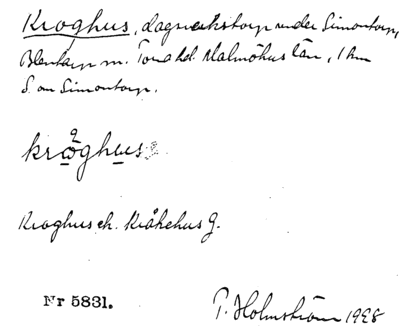 Kroghus, dagsverkstorp under Simontorp,
Blentarp sn. Torna hd. Malmöhus län, 1 km
S. om Simontorp.
krøghus
Kroghus ell. Kråkehus G.
Nr 5831.
P. Holmström 1928